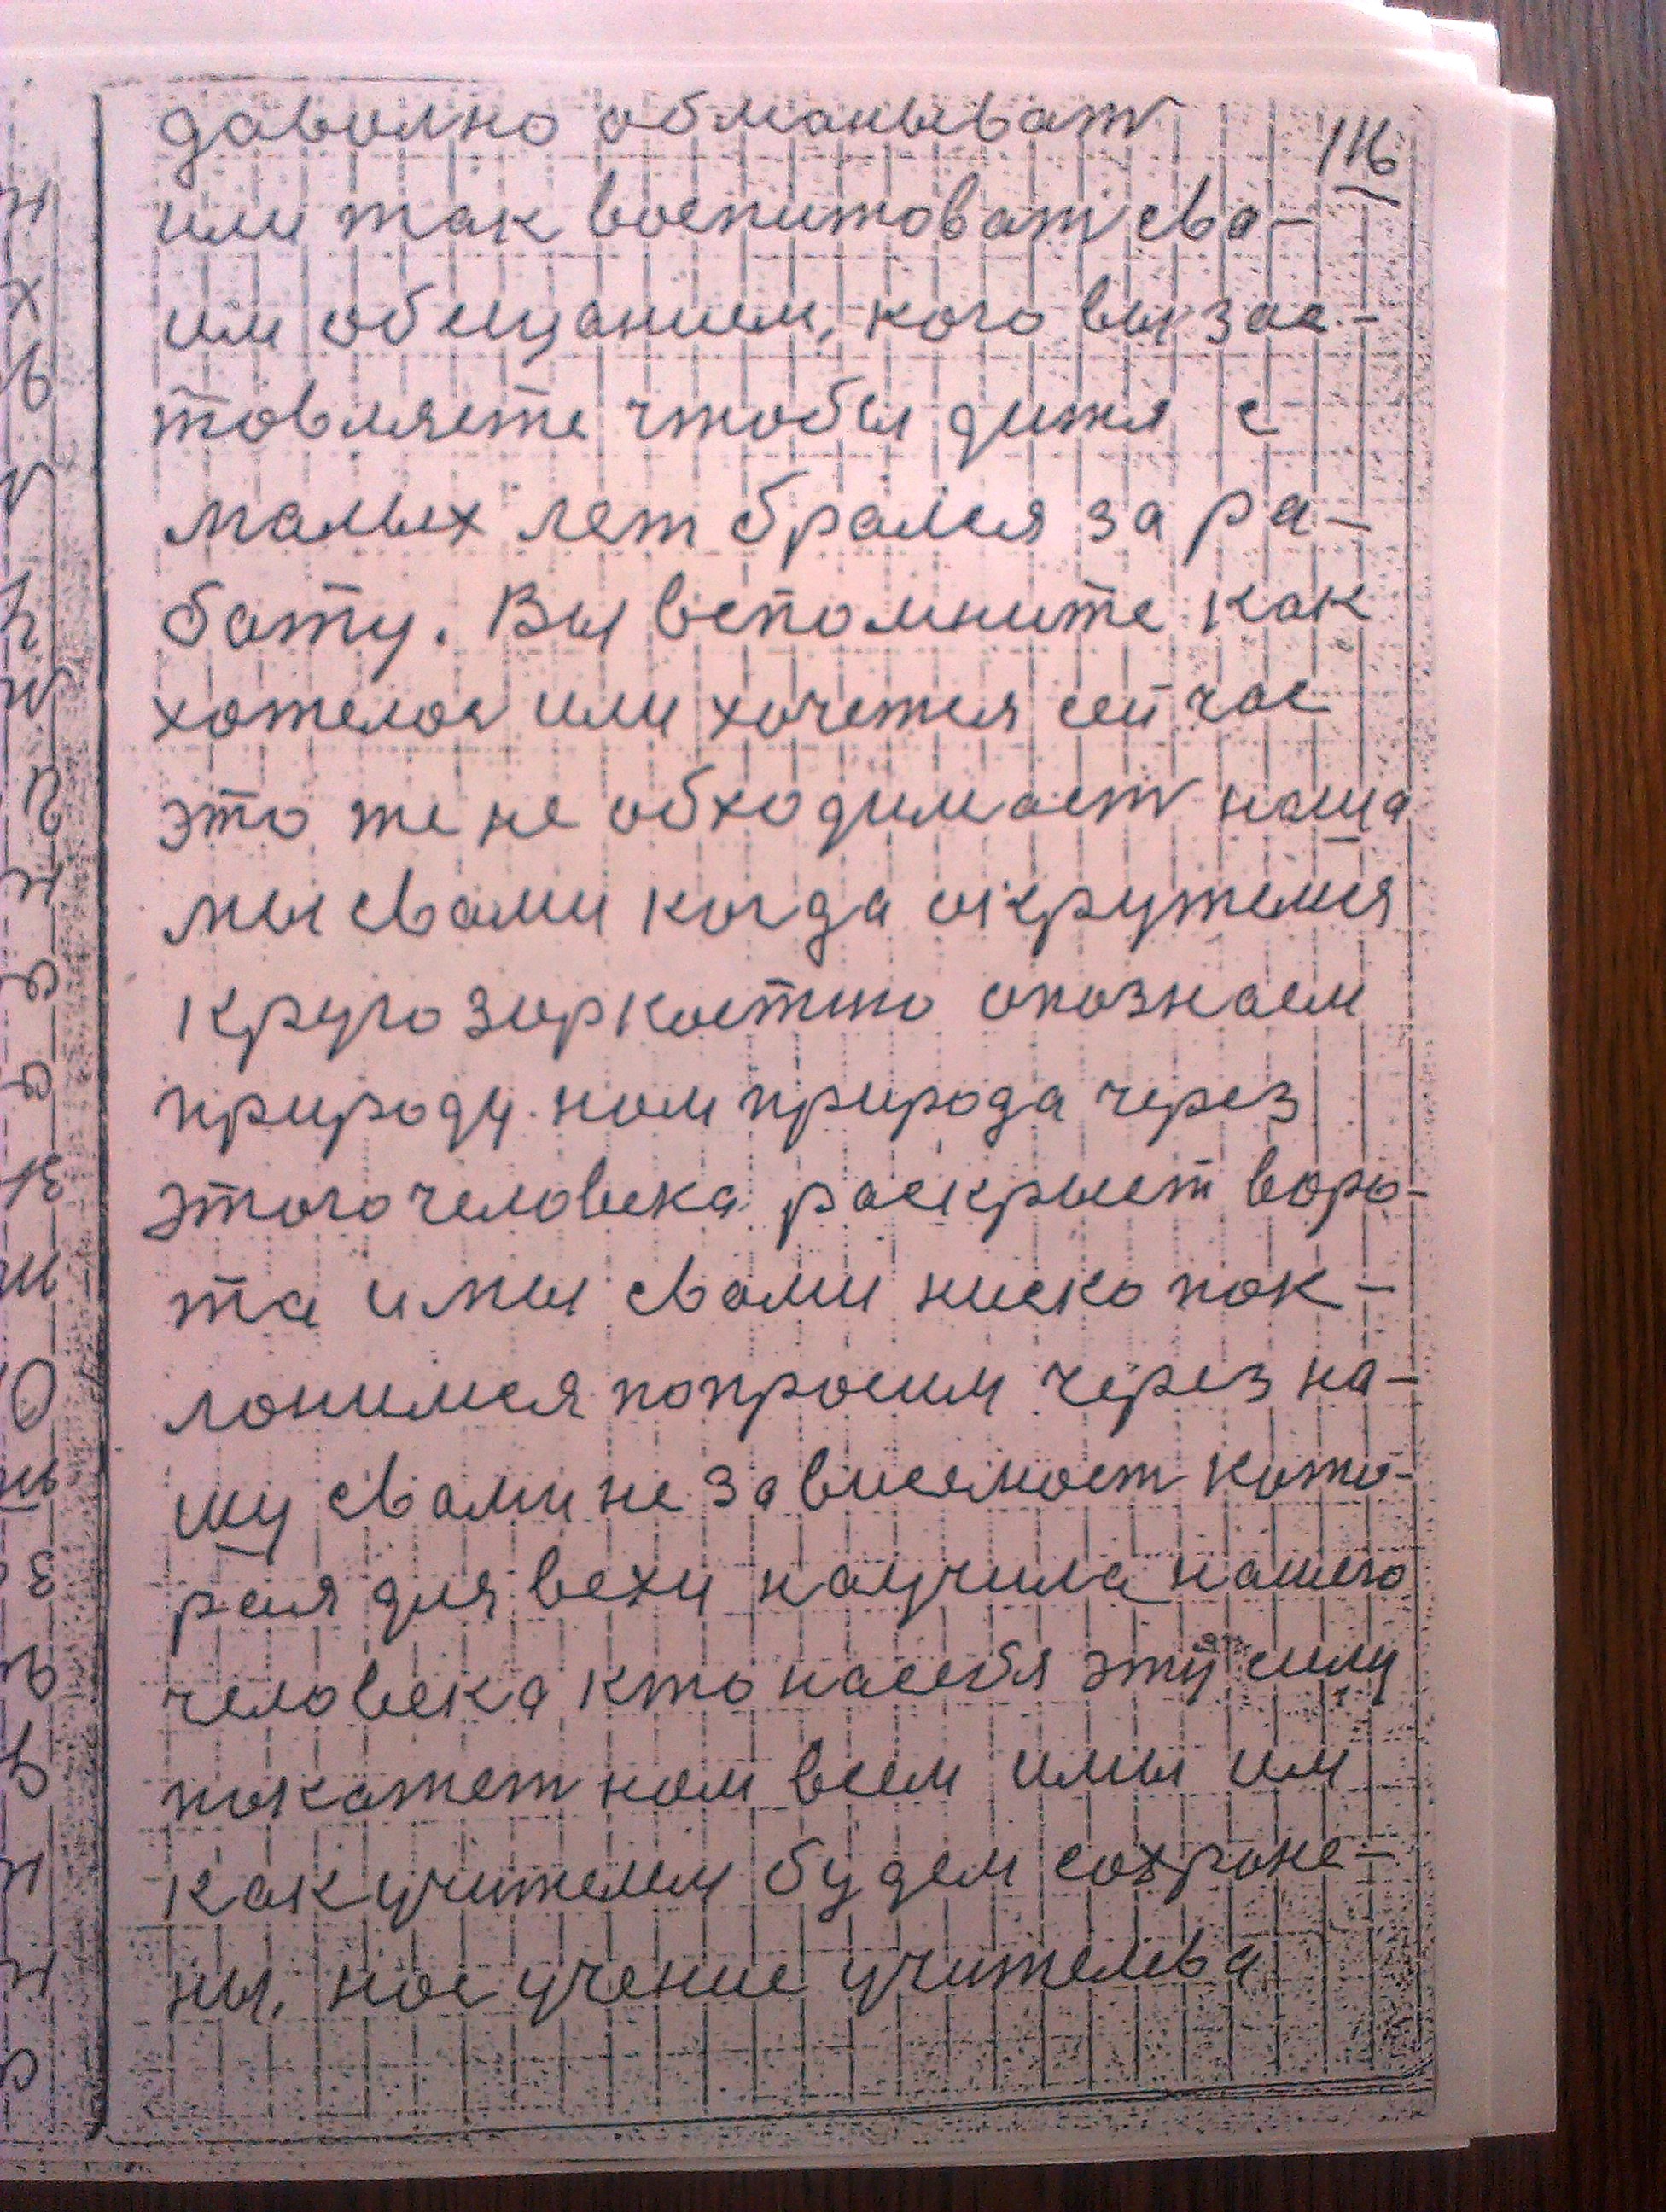 даволно обманыват
116
или так воспитоват сва-
им обещанием, кого вы зас-
товляете чтобы дитя с
малых лет брался за ра-
боту. Вы вспомните как
хотелос или хочется сейчас
это же не обходимаст наша
мы свами когда окружемся
кругозоркостию опознаем
природу. нам природа через
этого человека раскрыет воро-
та имы свами ниско пок-
лонимся попросим через на-
шу свами не зависямост кото-
рая для всех научила нашего
человека кто насебя эту силу
покажет нам всем имы им
как учителем будем сохране-
ны, нас учение учителева